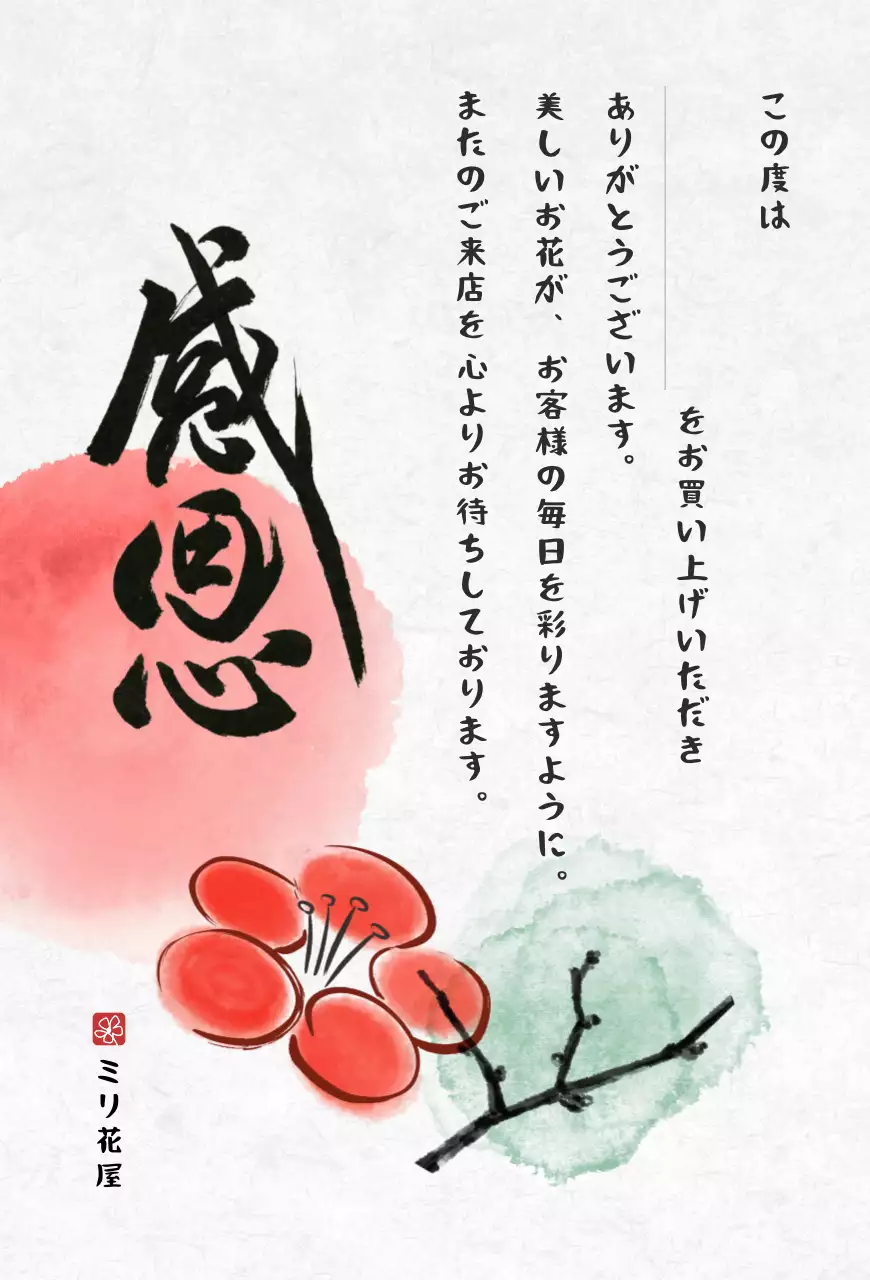 この度は
をお買い上げいただき
ありがとうございます。
美しいお花が、お客様の毎日を彩りますように。
またのご来店を心よりお待ちしております。
感恩
ミリ花屋